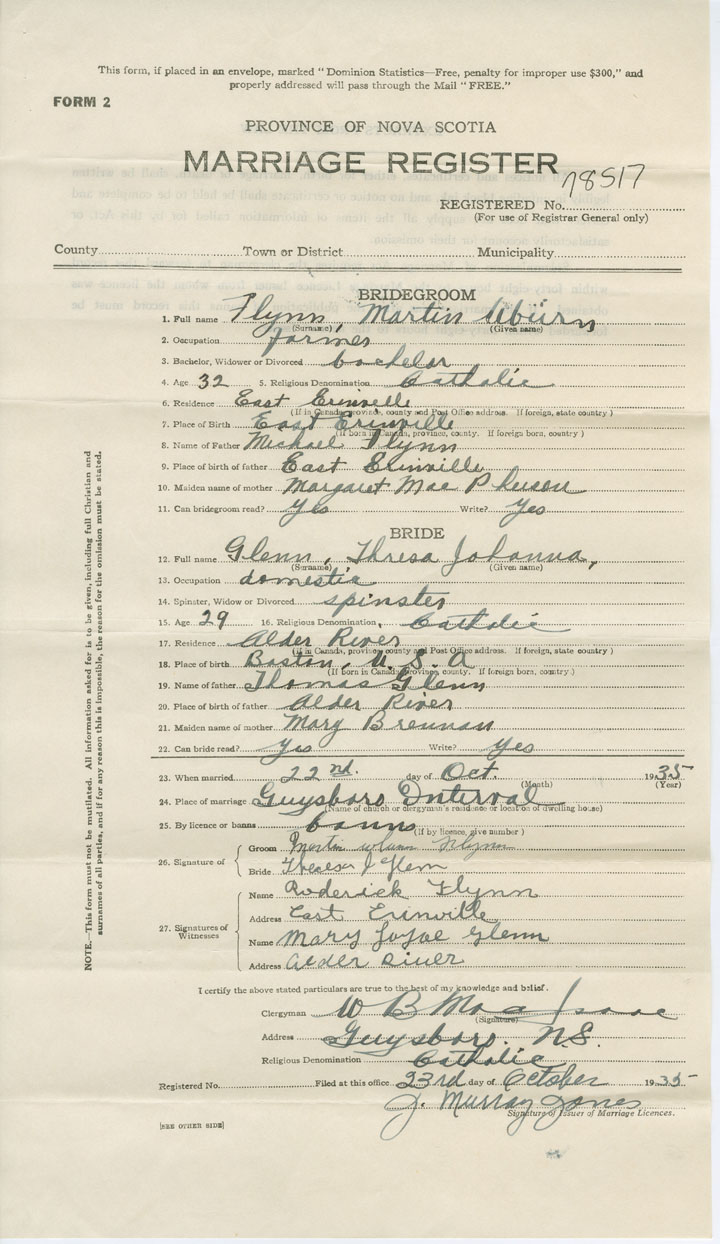 This form, if placed in an envelope, marked "Dominion Statistics—Free, penalty for improper use $300," and
properly addressed will pass through the Mail "FREE."
FORM 2
PROVINCE OF NOVA SCOTIA
MARRIAGE REGISTER
REGISTERED No. 78517
(For use of Registrar General only)
County Town or District Municipality
BRIDEGROOM
1. Full name Flynn, Martin
(Surname) (Given name)
2. Occupation farmer
3. Bachelor, Widower or Divorced bachelor
4. Age 32 5. Religious Denomination Catholic
6. Residence East Erinville
(If in Canada, province, county and Post Office address. If foreign, state country)
7. Place of Birth East Erinville
(If born in Canada, province, county. If foreign born, country)
8. Name of Father Michael Flynn
9. Place of birth of father East Erinville
10. Maiden name of mother Margaret Mac Pherson
11. Can bridegroom read? Yes Write? Yes
BRIDE
12. Full name Glenn, Thresa Johanna,
(Surname) (Given name)
13. Occupation domestic
14. Spinster, Widow or Divorced spinster
15. Age 29 16. Religious Denomination Catholic
17. Residence Alder River
(If in Canada, province county and Post Office address. If foreign, state country)
18. Place of birth Boston, U. S. A
(If born in Canada, province, county. If foreign born, country.)
19. Name of father Thomas Glenn
20. Place of birth of father Alder River
21. Maiden name of mother Mary Brennan
22. Can bride read? Yes Write? Yes
23. When married 22nd. day of Oct. 1935
(Month) (Year)
24. Place of marriage Guysboro Interval
(Name of church or clergyman's residence or location of dwelling house)
25. By licence or banns banns
(If by licence, give number)
26. Signature of
Groom Martin Flynn
Bride Theresa J Glenn
27. Signatures of Witnesses
Name Roderick Flynn
Address East Erinville
Name Mary Glenn
Address Alder River
I certify the above stated particulars are true to the best of my knowledge and belief.
Clergyman W B Mac Isaac
(Signature)
Address Guysboro. N.S.
Religious Denomination Catholic
Registered No. Filed at this office 23rd day of October 1935
J. Murray Jones
Signature of Issuer of Marriage Licences.
[SEE OTHER SIDE]
NOTE.—This form must not be mutilated. All information asked for is to be given, including full Christian and
surnames of all parties, and if for any reason this is impossible, the reason for the omission must be stated.